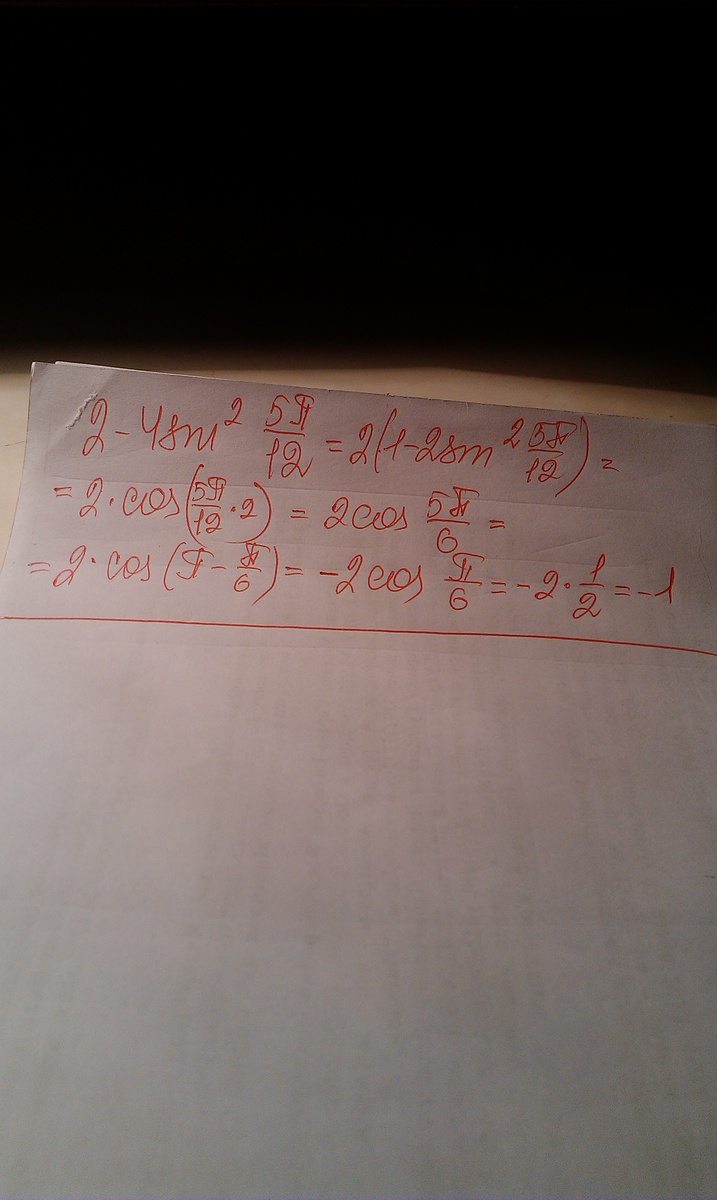 2 - 4sin² 5π/12 = 2(1 - 2sin² 5π/12) =
= 2 · cos(5π/12 · 2) = 2cos 5π/6 =
= 2 · cos(π - π/6) = -2cos π/6 = -2 · 1/2 = -1